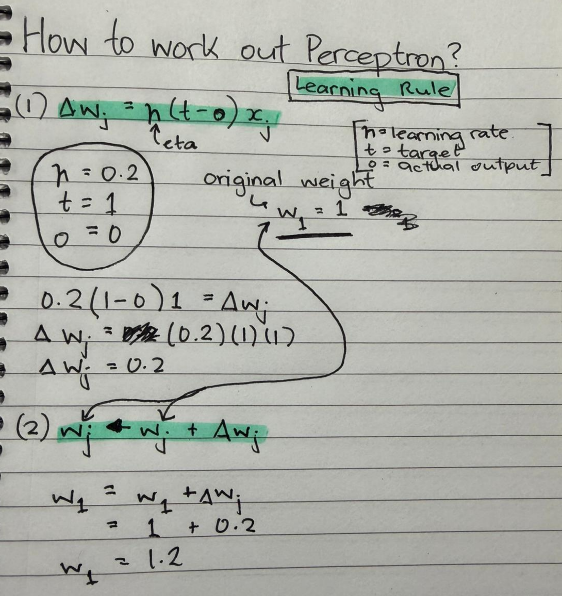 How to work out Perceptron?
Learning Rule
(1) Δwⱼ = η(t-o) xⱼ
↑eta
η = learning rate
t = target
o = actual output
η = 0.2
t = 1
o = 0
original weight
↳ w₁ = 1
0.2(1-0)1 = Δwⱼ
Δwⱼ = (0.2)(1)(1)
Δwⱼ = 0.2
(2) wⱼ ← wⱼ + Δwⱼ
w₁ = w₁ + Δwⱼ
= 1 + 0.2
w₁ = 1.2